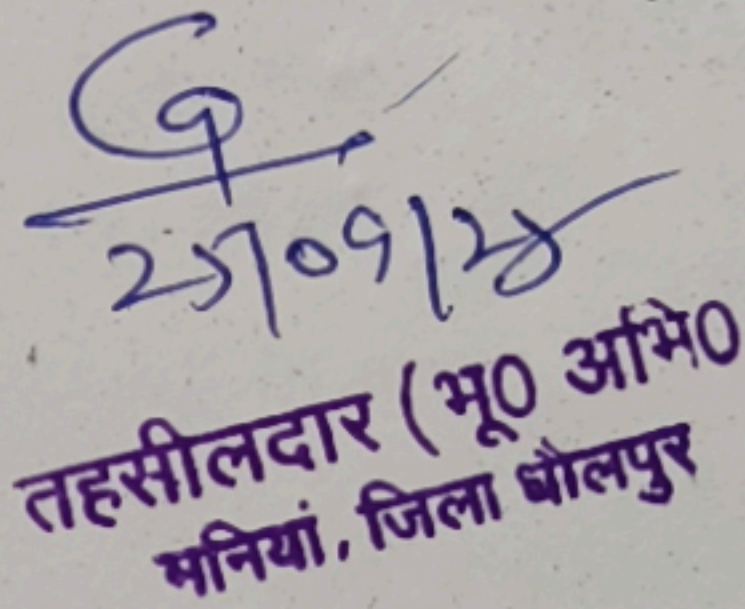 25/09/24
तहसीलदार (भू0 अभि0
मनियां, जिला धौलपुर